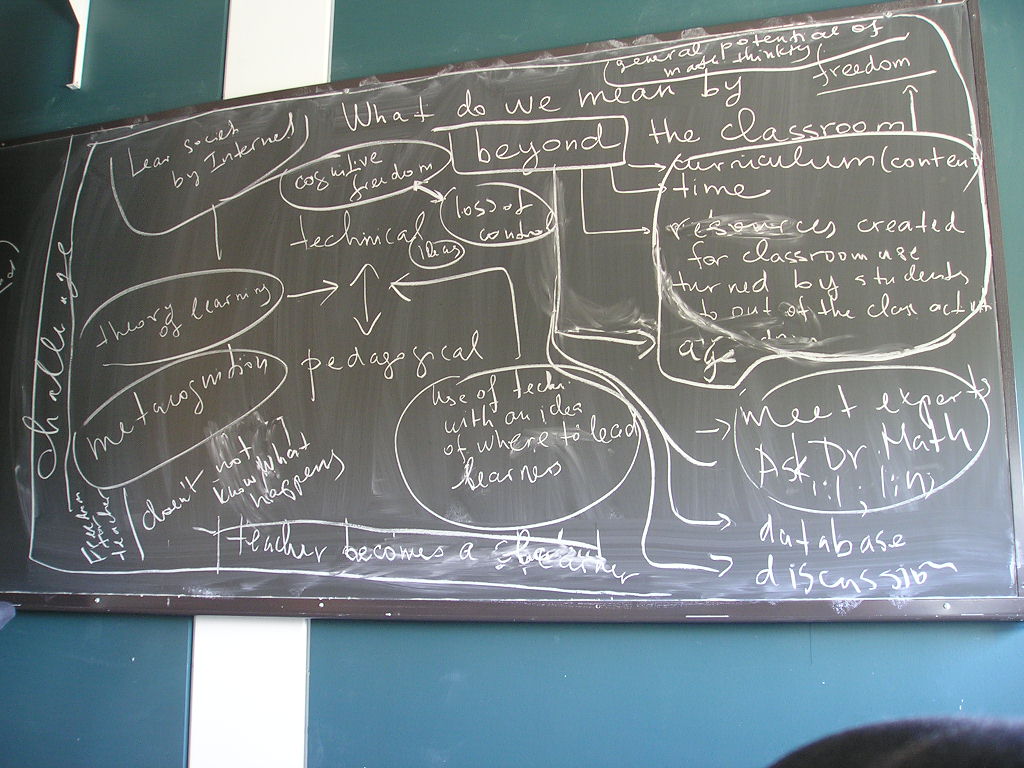 general potential of
math thinking
freedom
What do we mean by
beyond
the classroom
Lear societ
by Internet
cognitive
freedom
loss of
control
technical
ideas
curriculum (content
time
resources created
for classroom use
turned by students
to out of the class activi
age
theory
of learning
pedagogical
metacognition
challenge
Use of techn.
with an idea
of where to lead
learners
meet experts
Ask Dr. Math
doesn't not
know what
happens
Freedom
teacher
teacher becomes a learner
database
discussion